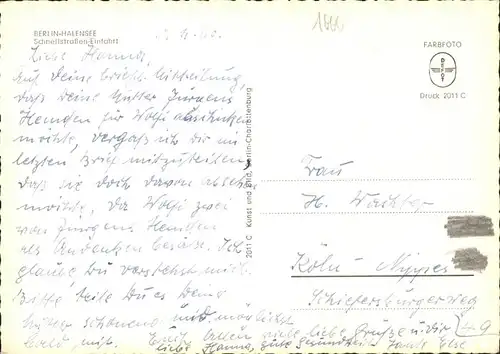 BERLIN-HALENSEE
Schnellstraßen-Einfahrt
Liebe Hanna,
Auf Deine briefl. Mitteilung,
daß Deine Mutter Jürgens
Hemden für Wolfi abschicken
möchte, vergaß ich Dir im
letzten Brief mitzuteilen,
daß sie doch davon absehen
möchte, da Wolfi zwei
von Jürgens Hemden
als Andenken besitze. Ich
glaube, Du verstehst mich.
Bitte teile Du es Deiner
Mutter schonend und möglichst
bald mit. Euch allen viele liebe Grüße u. Dir
liebe Hanna, gute Gesundheit Tante Else
2011 C Kunst und Bild, Berlin-Charlottenburg
1000
FARBFOTO
DEFOT
Druck 2011 C
Frau
H. Wachter
Köln-Nippes
Schiefersburgerweg
49